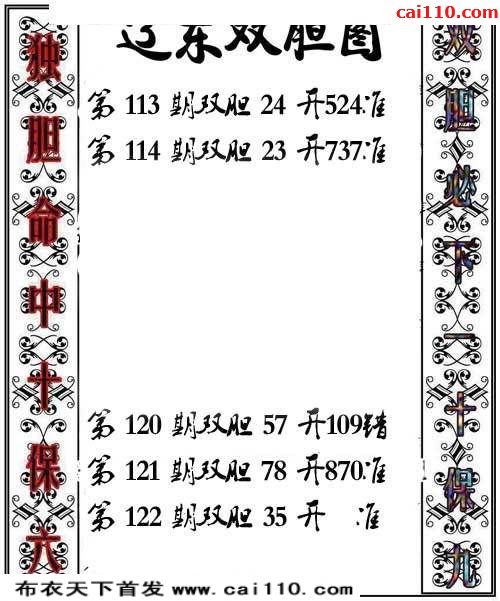 cai110.com
辽东双胆图
独胆命中十保六
双胆必下一十保九
第 113 期双胆 24 开524准
第 114 期双胆 23 开737准
第 120 期双胆 57 开109错
第 121 期双胆 78 开870准
第 122 期双胆 35 开 准
布衣天下首发 www.cai110.com